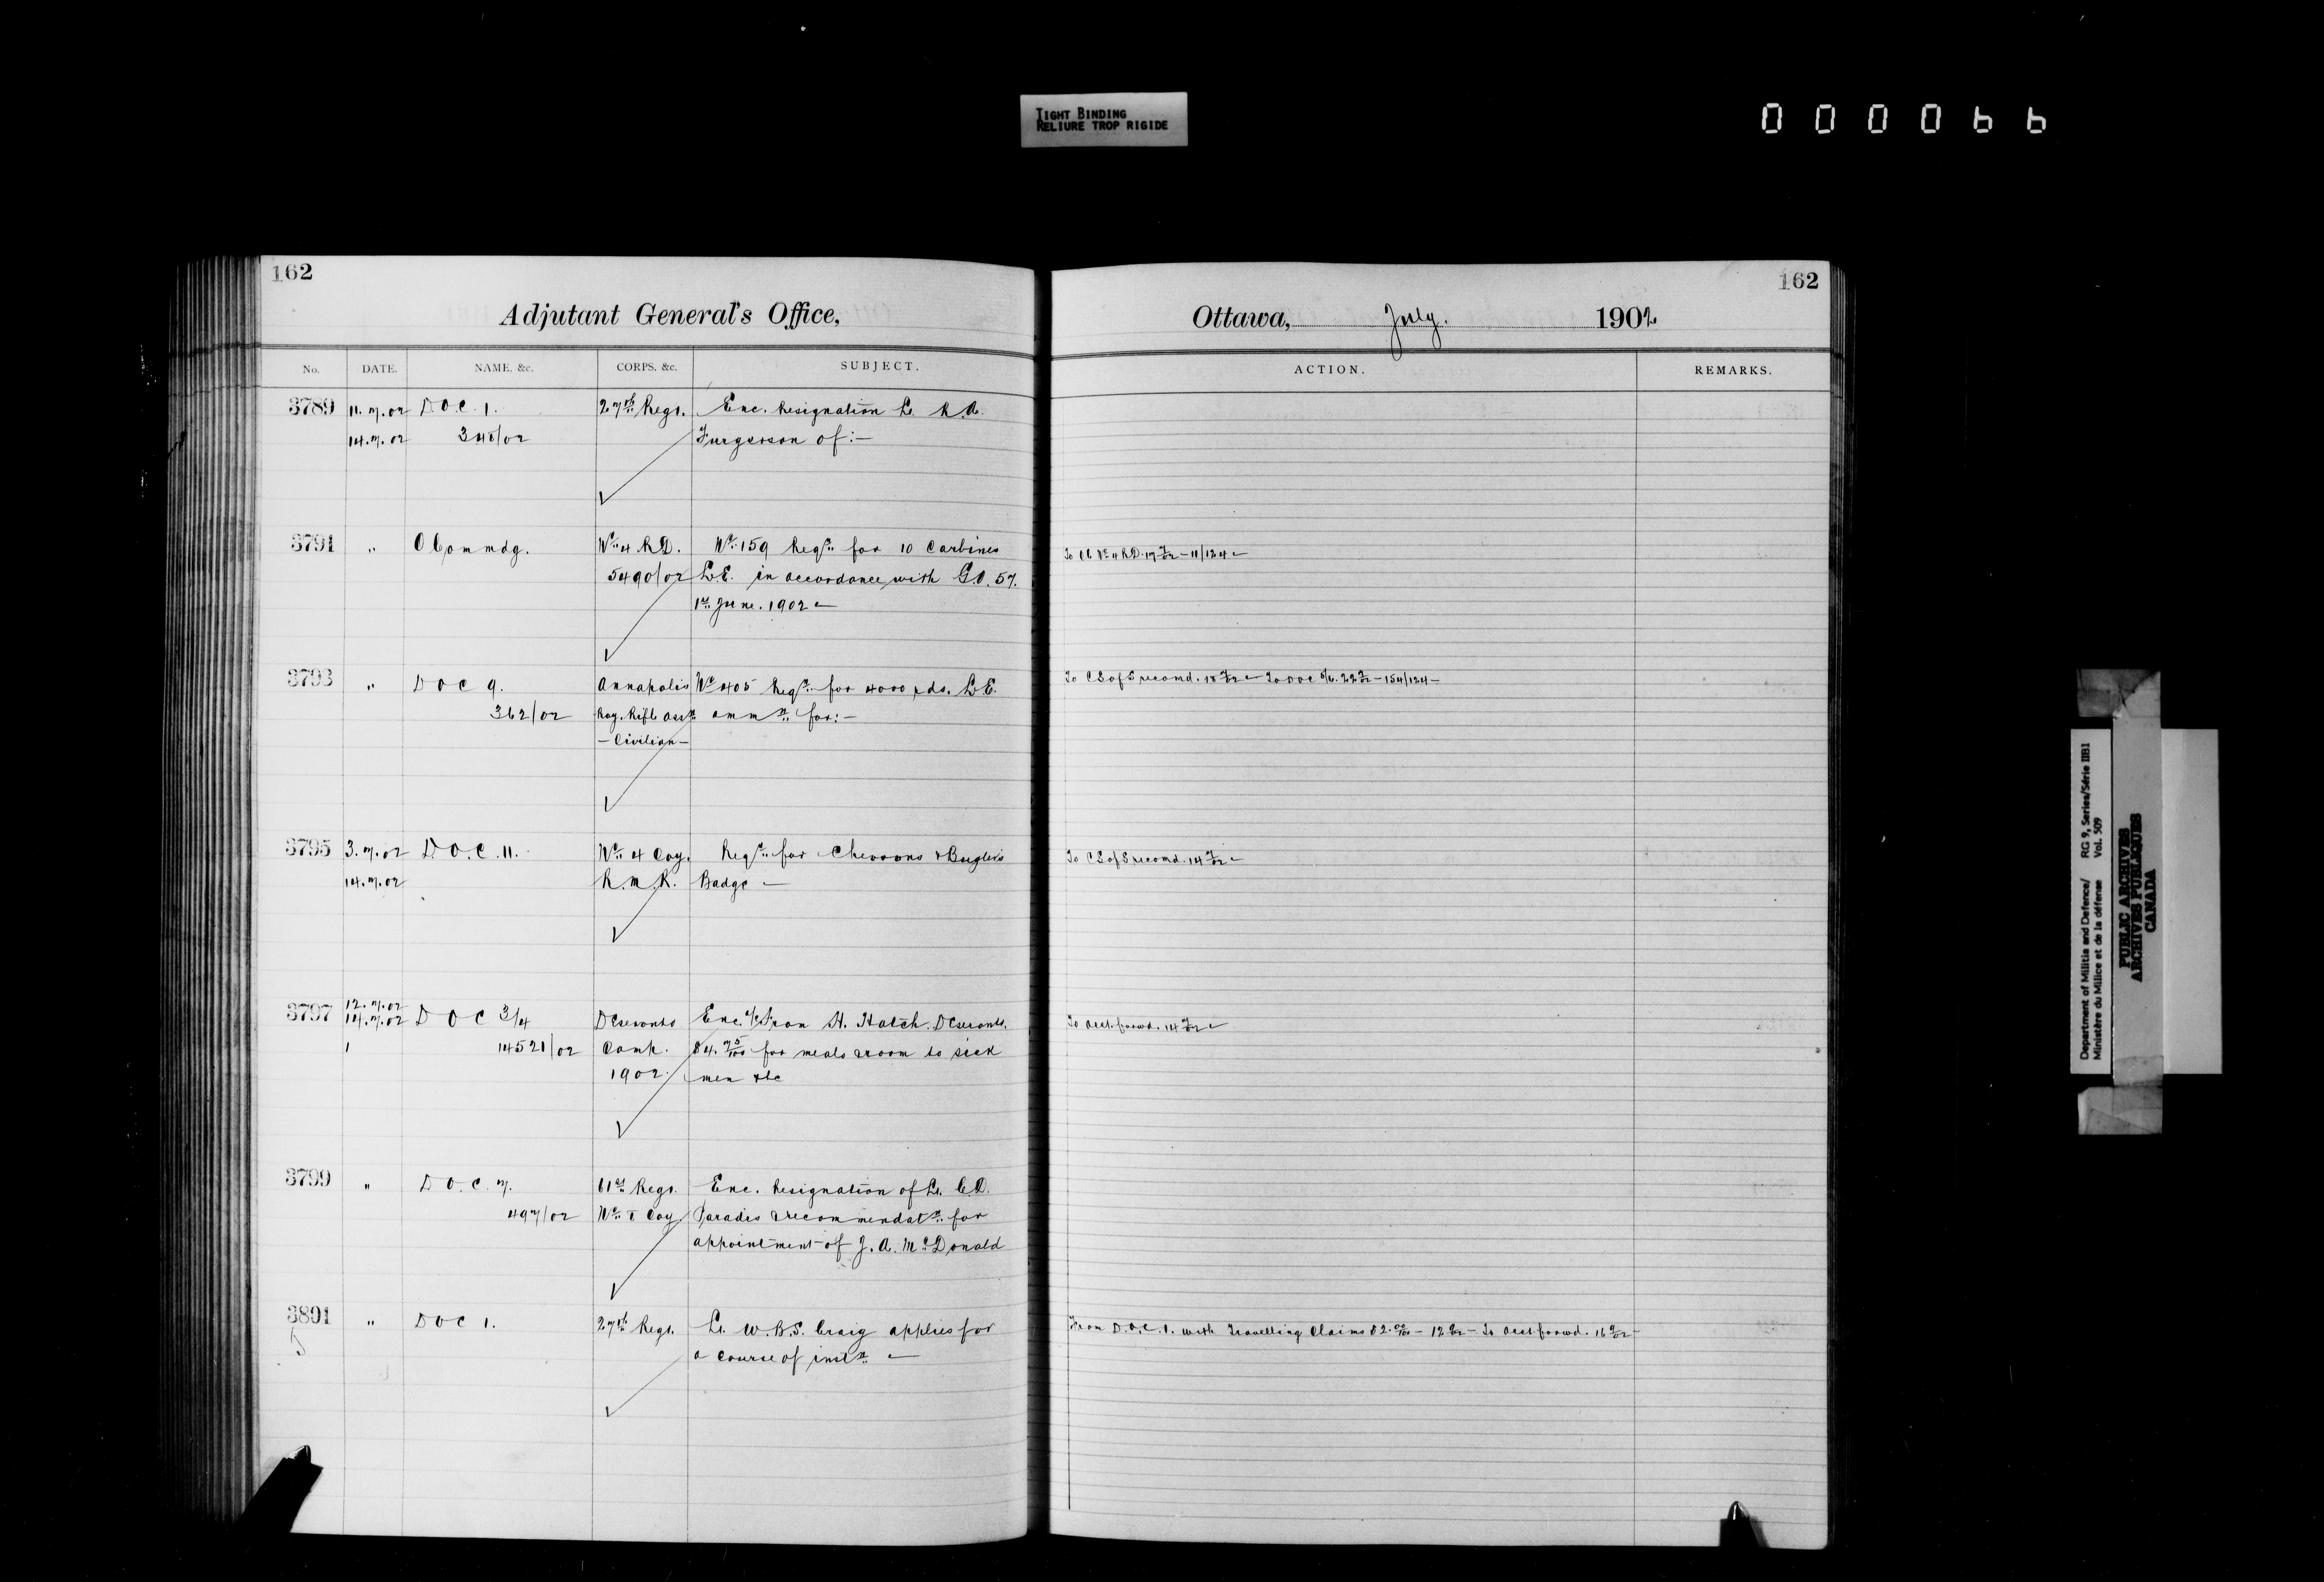 TIGHT BINDING
RELIURE TROP RIGIDE
000066
162
Adjutant General's Office,
No. DATE. NAME, &c. CORPS, &c. SUBJECT.
3789 11.7.02 D.O.C. 1. 27th Regt. Enc. Resignation Lt. R.A.
14.7.02 345/02 Furgerson of:—
3791 " O Commdg. No. 4 R.D. No. 159 Reqn. for 10 Carbines
5490/02 L.E. in accordance with G.O. 57.
1st June. 1902 —
3793 " D O C 9. Annapolis No 405 Reqn. for 4000 rds. L.E.
362/02 Roy. Rifle Assn. ammn. for:—
— Civilian —
3795 3.7.02 D.O.C. 11. No. 4 Coy. Reqn. for Chevrons & Bugler's
14.7.02 R.M.R. Badge —
12.7.02
3797 14.7.02 D O C 3/4 Deseronto Enc. a/c from H. Hatch. Deseronto.
1 14521/02 Camp. $4.75/100 for meals & room to sick
1902. men &c
3799 " D O. C. 7. 61st Regt. Enc. Resignation of Lt. C.D.
497/02 No. 5 Coy. Paradis & recommendatn. for
appointment of J. A. McDonald
3801 " D O C 1. 27th Regt. Lt. W.B.S. Craig applies for
a course of instn. —
162
Ottawa, July. 1902
ACTION. REMARKS.
To O C No 4 R.D. 17 7/02 – 11/124 –
To C S of S recomd. 15 7/02 – To DOC 9. 22 7/02 – 154/124 –
To C S of S recomd. 14 7/02 –
To acct. forwd. 14 7/02 –
From D.O.C. 1. with Travelling Claims $2.00/100 – 12 9/02 – To acct. forwd. 16 9/02 –
Department of Militia and Defence/ RG 9, Series/Série IIB1
Ministère du Milice et de la défense Vol. 509
PUBLIC ARCHIVES
ARCHIVES PUBLIQUES
CANADA